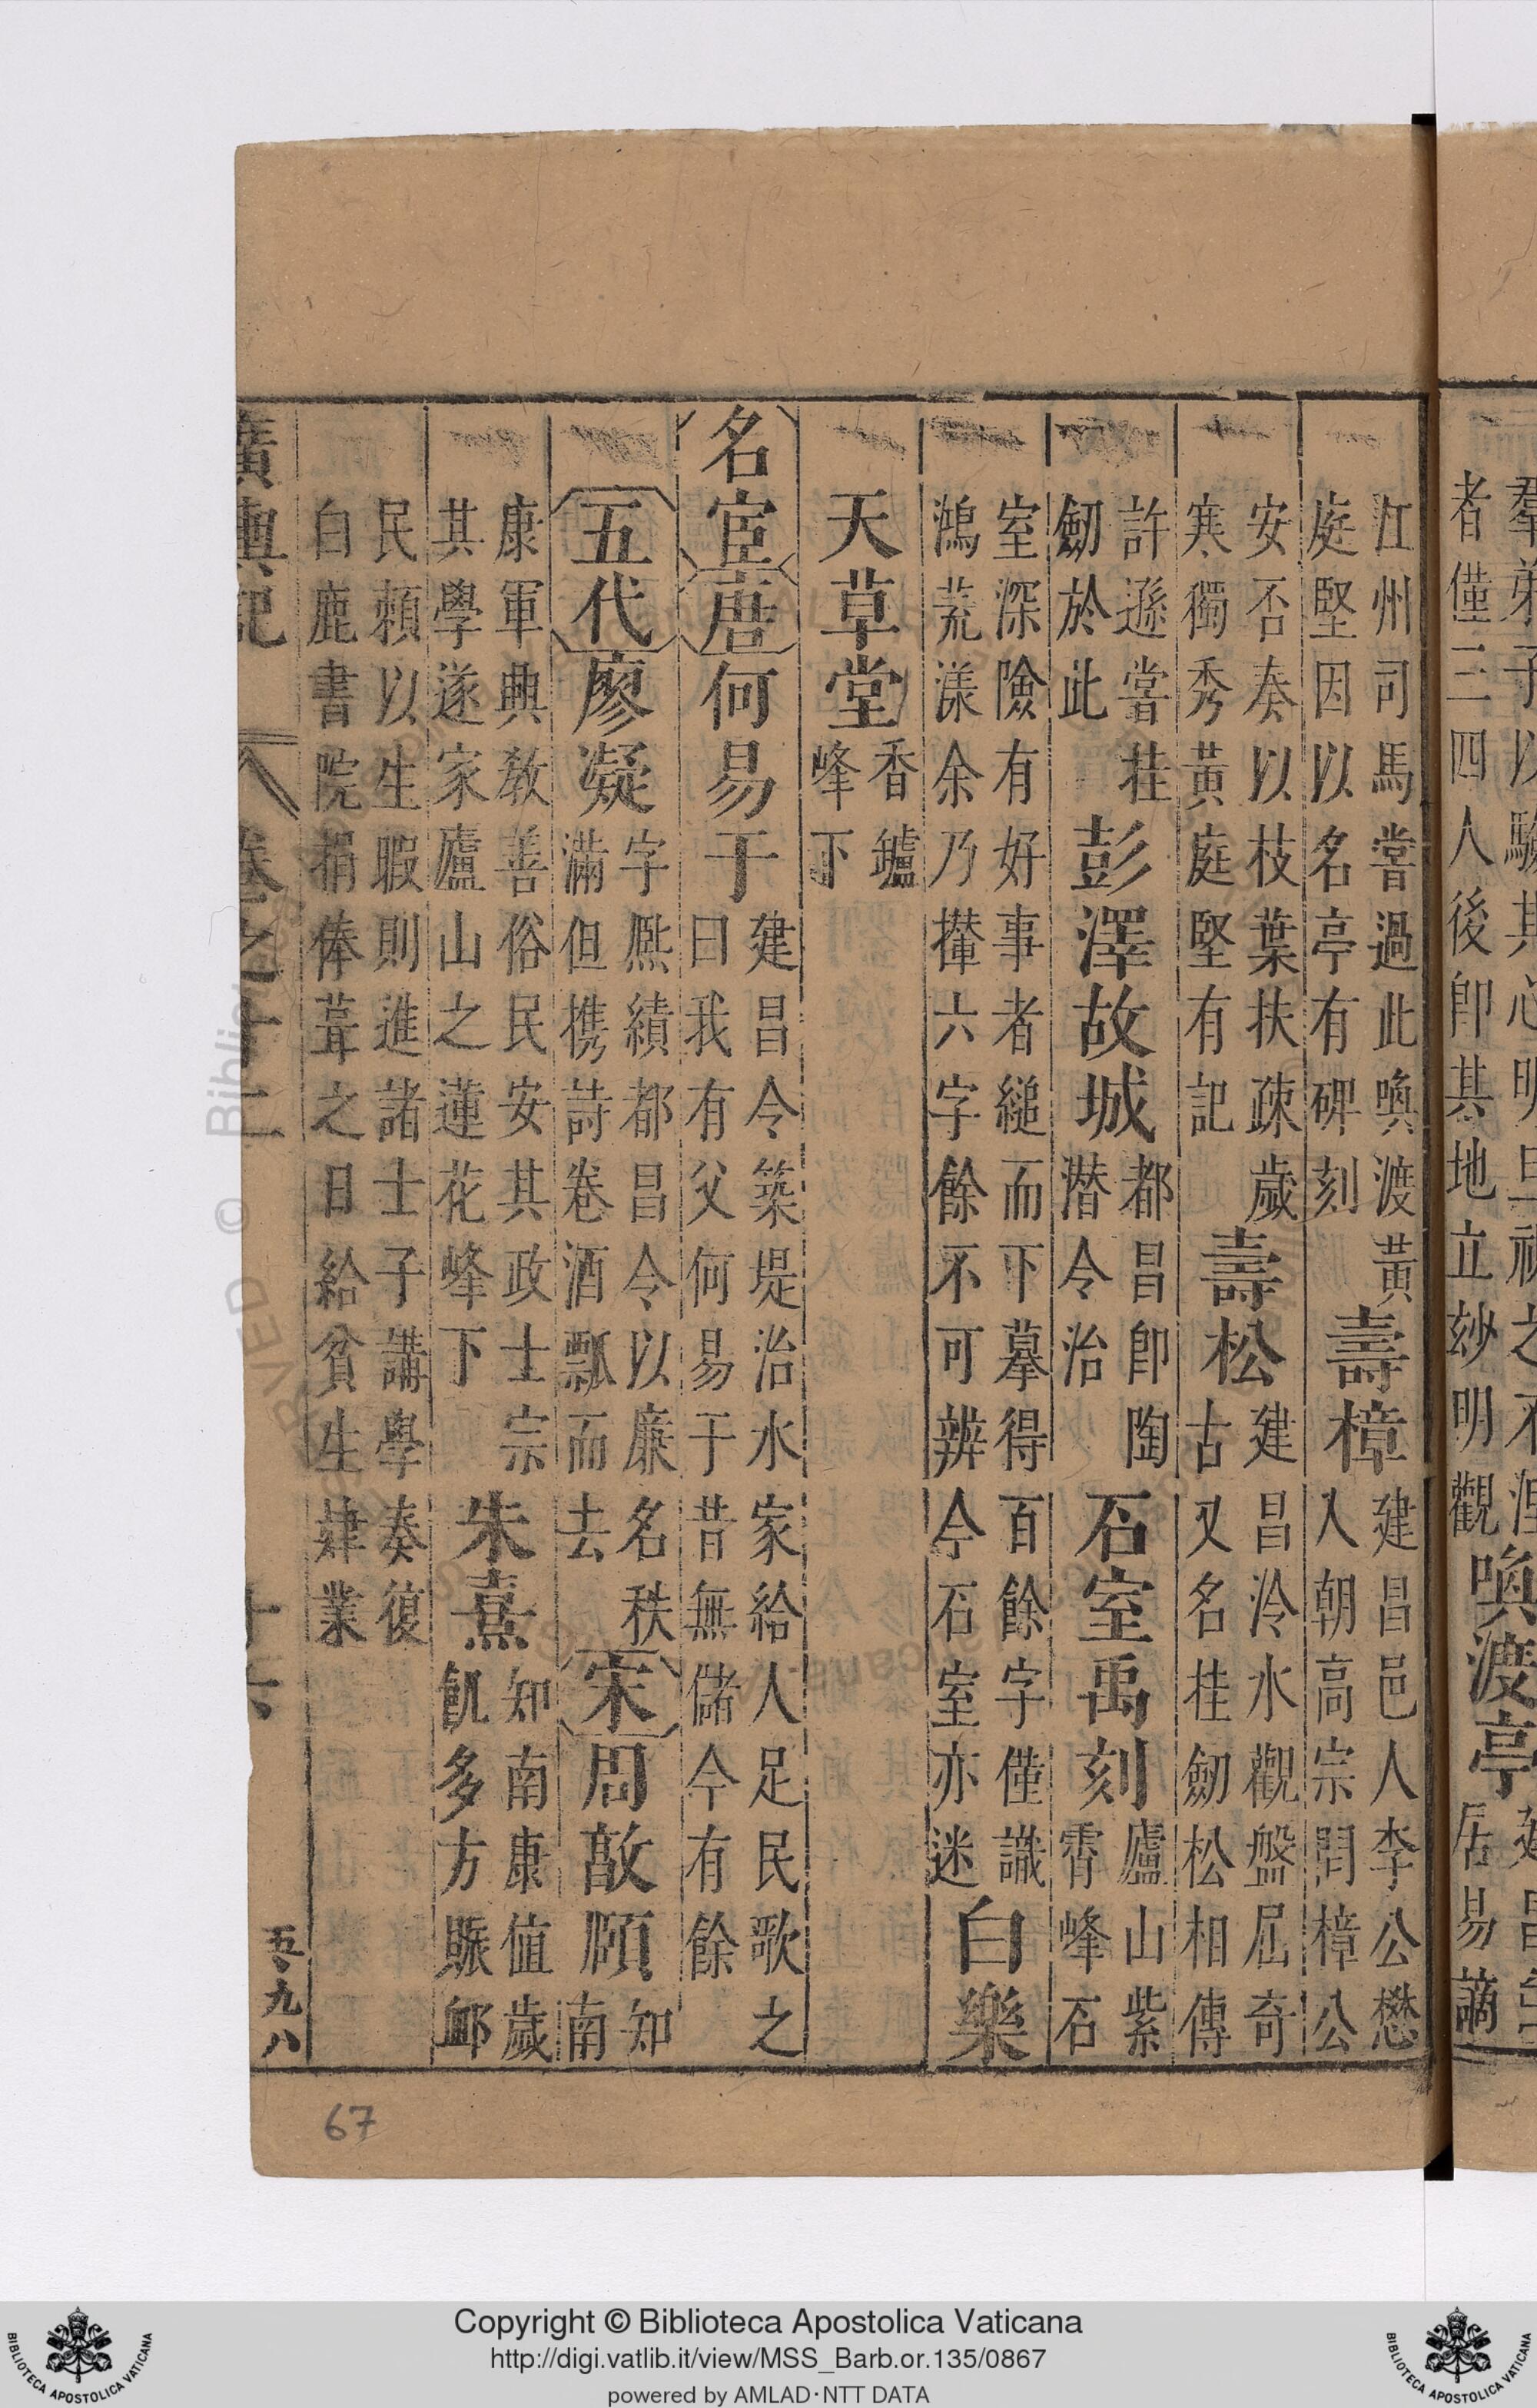 者僅三四人後卽其地立玅明觀
喚渡亭
居易謫
江州司馬嘗過此喚渡黃
庭堅因以名亭有碑刻
壽樟
建昌邑人李公懋
入朝高宗問樟公
安否奏以枝葉扶疎歲
寒獨秀黃庭堅有記
壽松
建昌泠水觀盤屈奇
古又名桂劒松相傳
許遜嘗挂
劒於此
彭澤故城
都昌卽陶
潜令治
石室禹刻
廬山紫
霄峰石
室深險有好事者縋而下摹得百餘字僅識
鴻荒漾余乃攆六字餘不可辨今石室亦迷
白樂
天草堂
香鑪
峰下
名宦
唐
何易于
建昌令築堤治水家給人足民歌之
曰我有父何易于昔無儲今有餘
五代
廖凝
字熈績都昌令以廉名秩
滿但携詩卷酒瓢而去
宋
周敦頤
知
南
康軍興教善俗民安其政士宗
其學遂家廬山之蓮花峰下
朱熹
知南康値歲
飢多方賑卹
民賴以生暇則進諸士子講學奏復
白鹿書院捐俸葺之日給貧生肄業
廣輿記
卷之十二
十六
五九八
67
Copyright © Biblioteca Apostolica Vaticana
http://digi.vatlib.it/view/MSS_Barb.or.135/0867
powered by AMLAD·NTT DATA
BIBLIOTECA APOSTOLICA VATICANA
BIBLIOTECA APOSTOLICA VATICANA